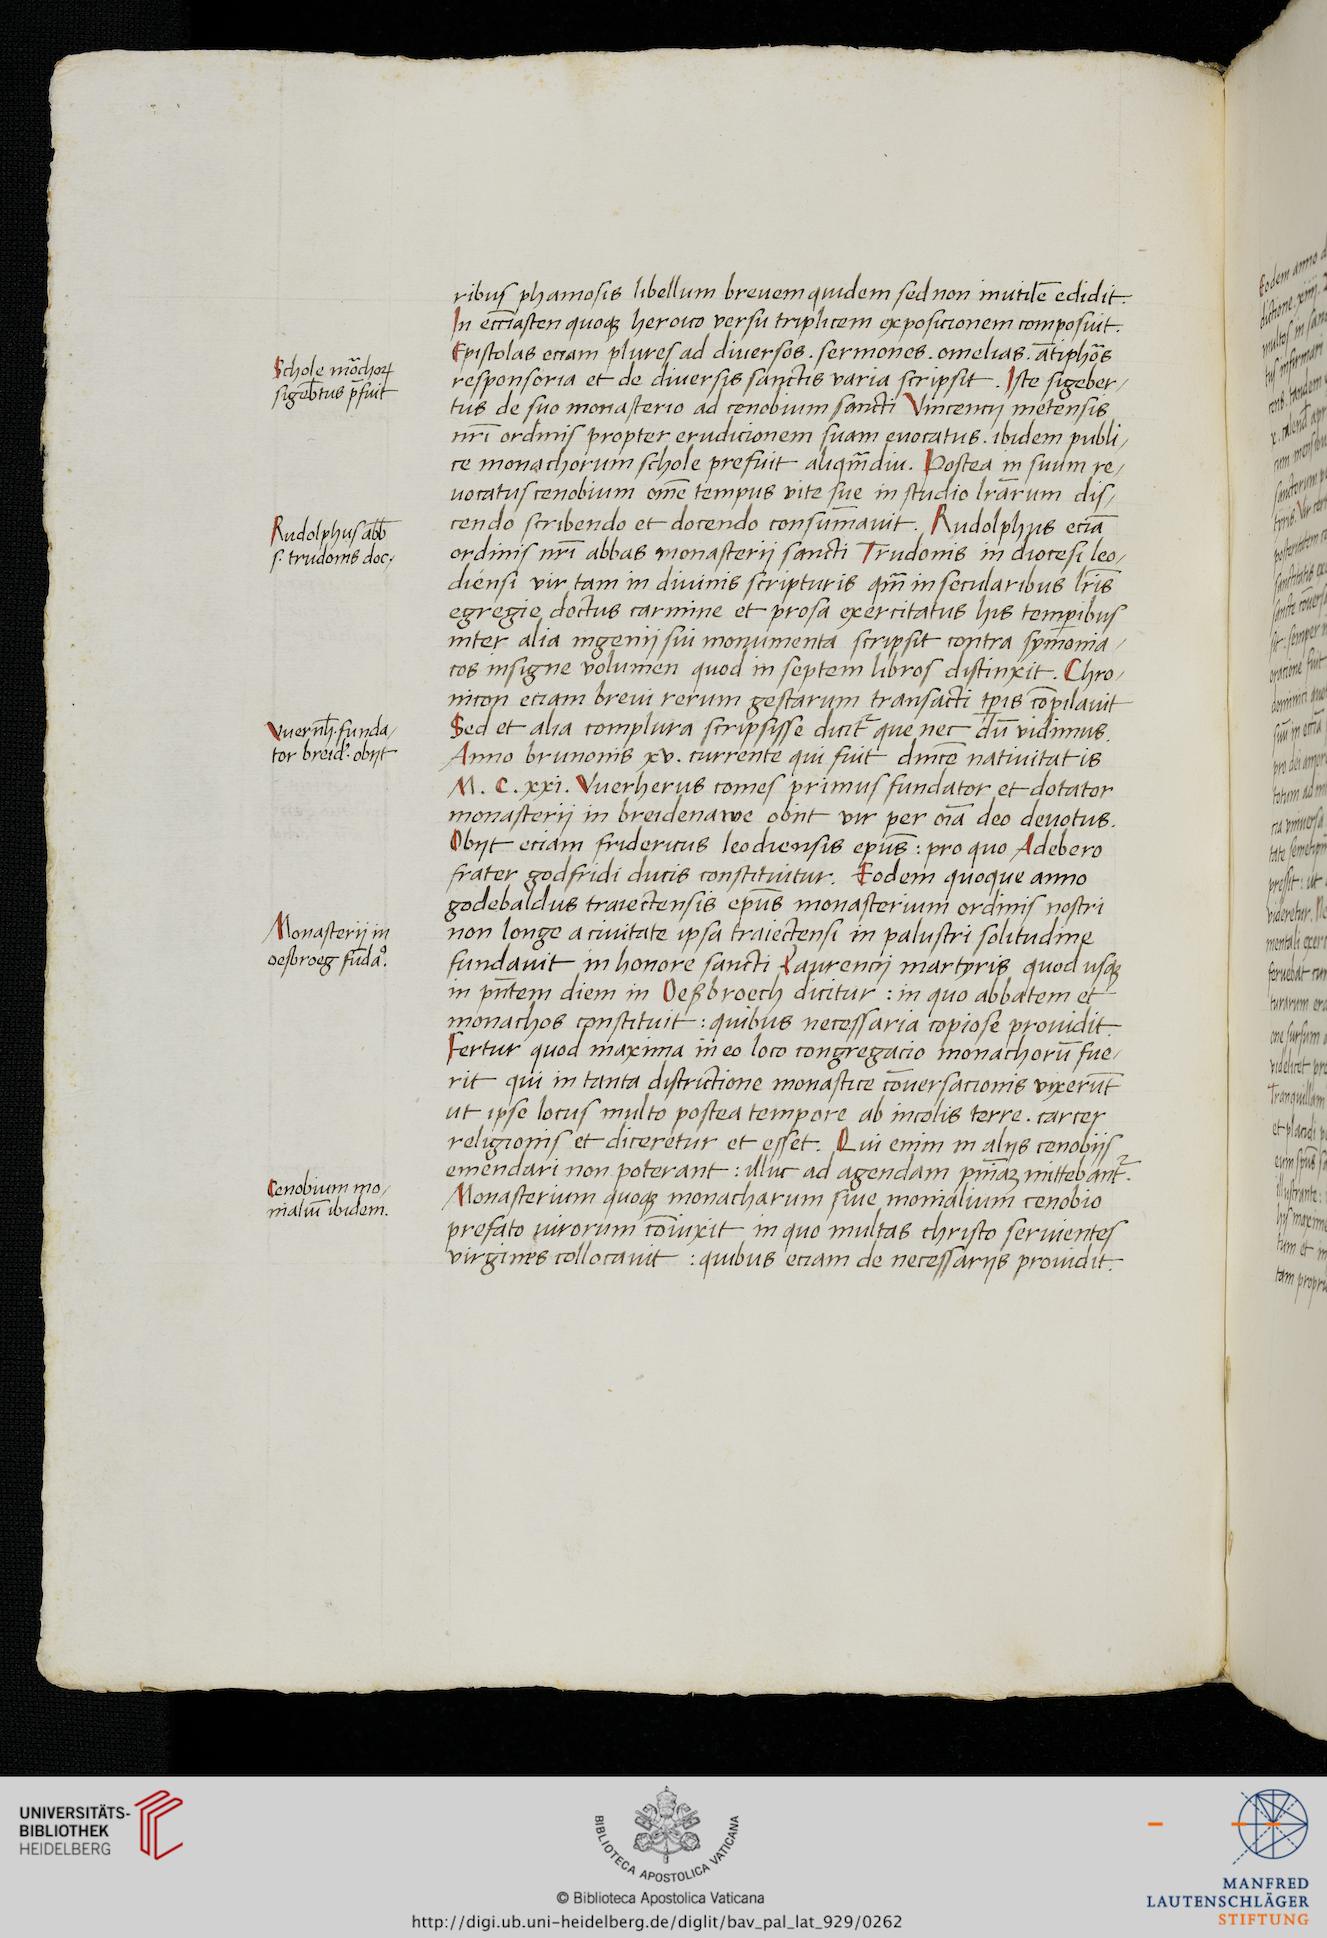 ribus phamosis libellum breuem quidem sed non inutilē edidit.
In ecciāsten quoqꝫ heroico versu triplicem exposicionem composuit.
Epistolas eciam plures ad diuersos. sermones. omelias. ātiphōs
responsoria et de diuersis sanctis varia scripsit. Iste sigeber/
tus de suo monasterio ad cenobium sancti Vincencij metensis
nrī ordinis propter erudicionem suam euocatus. ibidem publi/
ce monachorum schole prefuit aliqm̄diu. Postea in suum re/
uocatus cenobium om̄e tempus vite sue in studio lrārum dis/
cendo scribendo et docendo consum̄auit. Rudolphus eciā
ordinis nrī abbas monasterij sancti Trudonis in diocesi leo/
diensi vir tam in diuinis scripturis qm̄ in secularibus lrīs
egregie doctus carmine et prosa exercitatus his temꝑibus
inter alia ingenij sui monumenta scripsit contra symonia/
cos insigne volumen quod in septem libros distinxit. Chro/
nicon eciam breui rerum gestarum transacti tꝑis cōpilauit
Sed et alia complura scripsisse dicit᷑ que nec dū vidimus.
Anno brunonis xv. currente qui fuit dnīce natiuitatis
M. C. xxi. Vuerherus comes primus fundator et dotator
monasterij in breidenawe obijt vir per oīa deo deuotus.
Obijt eciam fridericus leodiensis ep̄us : pro quo Adebero
frater godfridi ducis constituitur. Eodem quoque anno
godebaldus traiectensis ep̄us monasterium ordinis nostri
non longe a ciuitate ipsa traiectensi in palustri solitudine
fundauit in honore sancti Laurencij martyris quod usqꝫ
in pn̄tem diem in Oeßbroech dicitur : in quo abbatem et
monachos constituit : quibus necessaria copiose prouidit.
Fertur quod maxima in eo loco congregacio monachorū fue/
rit qui in tanta districtione monastice cōuersacionis vixerūt
ut ipse locus multo postea tempore ab incolis terre. carcer
religionis et diceretur et esset. Qui enim in alijs cenobijs
emendari non poterant : illuc ad agendam pn̄iaꝫ mittebant᷑.
Monasterium quoqꝫ monacharum siue monialium cenobio
prefato uirorum cōiuxit in quo multas christo seruientes
virgines collocauit : quibus eciam de necessarijs prouidit.
Schole mōchoꝝ
sigeb̄tus p̄fuit
Rudolphus abb̄
s. trudonis doc.
Vuernh̄. funda/
tor breid. obijt
Monasterij in
oesbroeg fūda°.
Cenobium mo/
nialiū ibidem.
UNIVERSITÄTS-
BIBLIOTHEK
HEIDELBERG
BIBLIOTECA APOSTOLICA VATICANA
© Biblioteca Apostolica Vaticana
http://digi.ub.uni-heidelberg.de/diglit/bav_pal_lat_929/0262
MANFRED
LAUTENSCHLÄGER
STIFTUNG